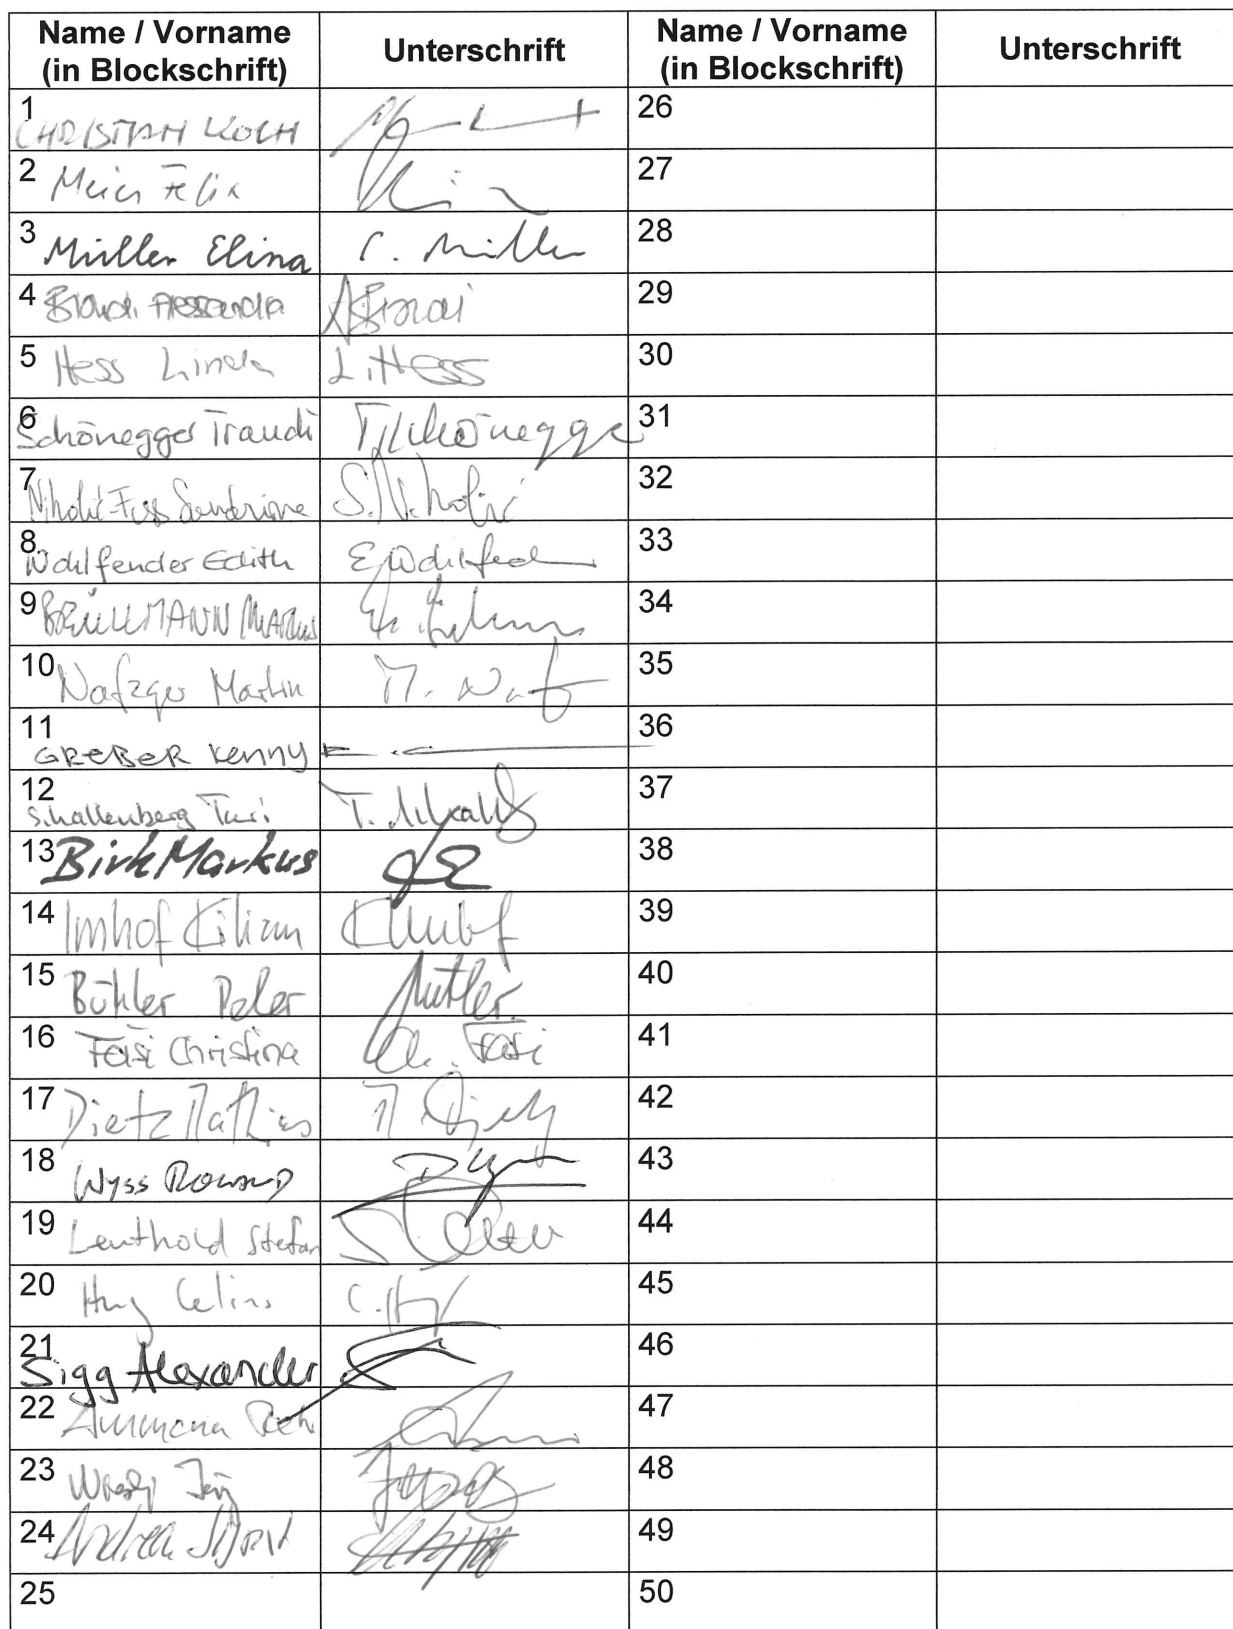 Name / Vorname
(in Blockschrift)
Unterschrift
Name / Vorname
(in Blockschrift)
Unterschrift
1 CHRISTIAN KOCH
26
2 Meier Felix
27
3 Müller Elina C. Müller
28
4 Biondi Alessandra
29
5 Hess Linda L. Hess
30
6 Schönegger Traudi T. Schönegger
31
7 Nikolić-Fuss Sandrine S. Nikolić
32
8 Wohlfender Edith
33
9 BRÜLLMANN MARKUS
34
10 Nafzger Martin
35
11 GREBER Kenny
36
12 Schallenberg Turi
37
13 Birk Markus
38
14 Imhof Kilian
39
15 Bühler Peter
40
16 Fäsi Christina Ch. Fäsi
41
17 Dietz Mathias
42
18 Wyss Roland
43
19 Leuthold Stefan
44
20 Hug Celina C. Hug
45
21 Sigg Alexander
46
22 Ammann
47
23
48
24 Andrea
49
25
50